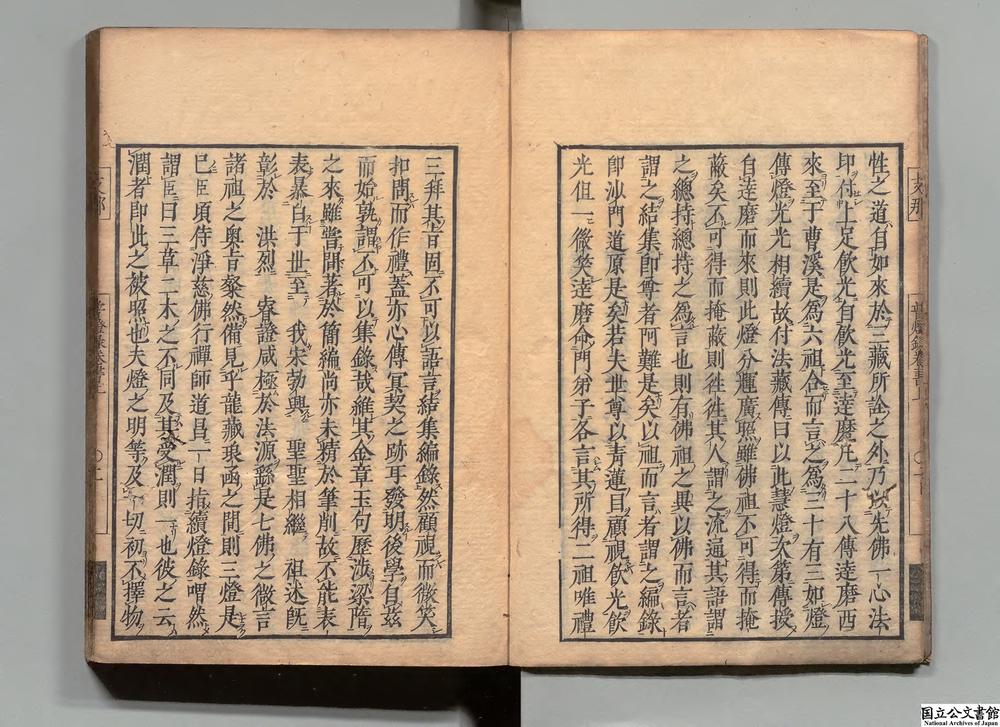 性之道自如來於三藏所詮之外乃以先佛一心法
印付上足飲光自飲光至達磨凡二十八傳達磨西
來至于曹溪是為六祖合而言之為三十有三如燈
傳燈光光相續故付法藏傳曰以此慧燈次第傳授
自達磨而來則此燈分輝廣照雖佛祖不可得而掩
蔽矣不可得而掩蔽則往往其人謂之流通其語謂
之總持總持之為言也則有佛祖之異以佛而言者
謂之結集即尊者阿難是矣以祖而言者謂之編錄
即沙門道原是矣若夫世尊以青蓮目顧視飲光飲
光但一微笑達磨命門弟子各言其所得二祖唯禮
三拜其旨固不可以語言結集編錄然顧視而微笑
扣問而作禮蓋亦心傳冥契之跡耳發明後學自茲
而始孰謂不可以集錄哉維其金章玉句歷涉梁隋
之來雖嘗間著於簡編尚亦未精於筆削故不能表
表暴白于世至 我宋勃興 聖聖相繼 祖述既
彰於 洪烈 睿證咸極於法源繇是七佛之微言
諸祖之奧旨粲然備見乎龍藏琅函之間則三燈是
已臣頃侍淨慈佛行禪師道昌一日指續燈錄喟然
謂臣曰三草二木之不同及其受潤則一也彼之云
潤者即此之被照也夫燈之明等及一切初不擇物
国立公文書館
National Archives of Japan